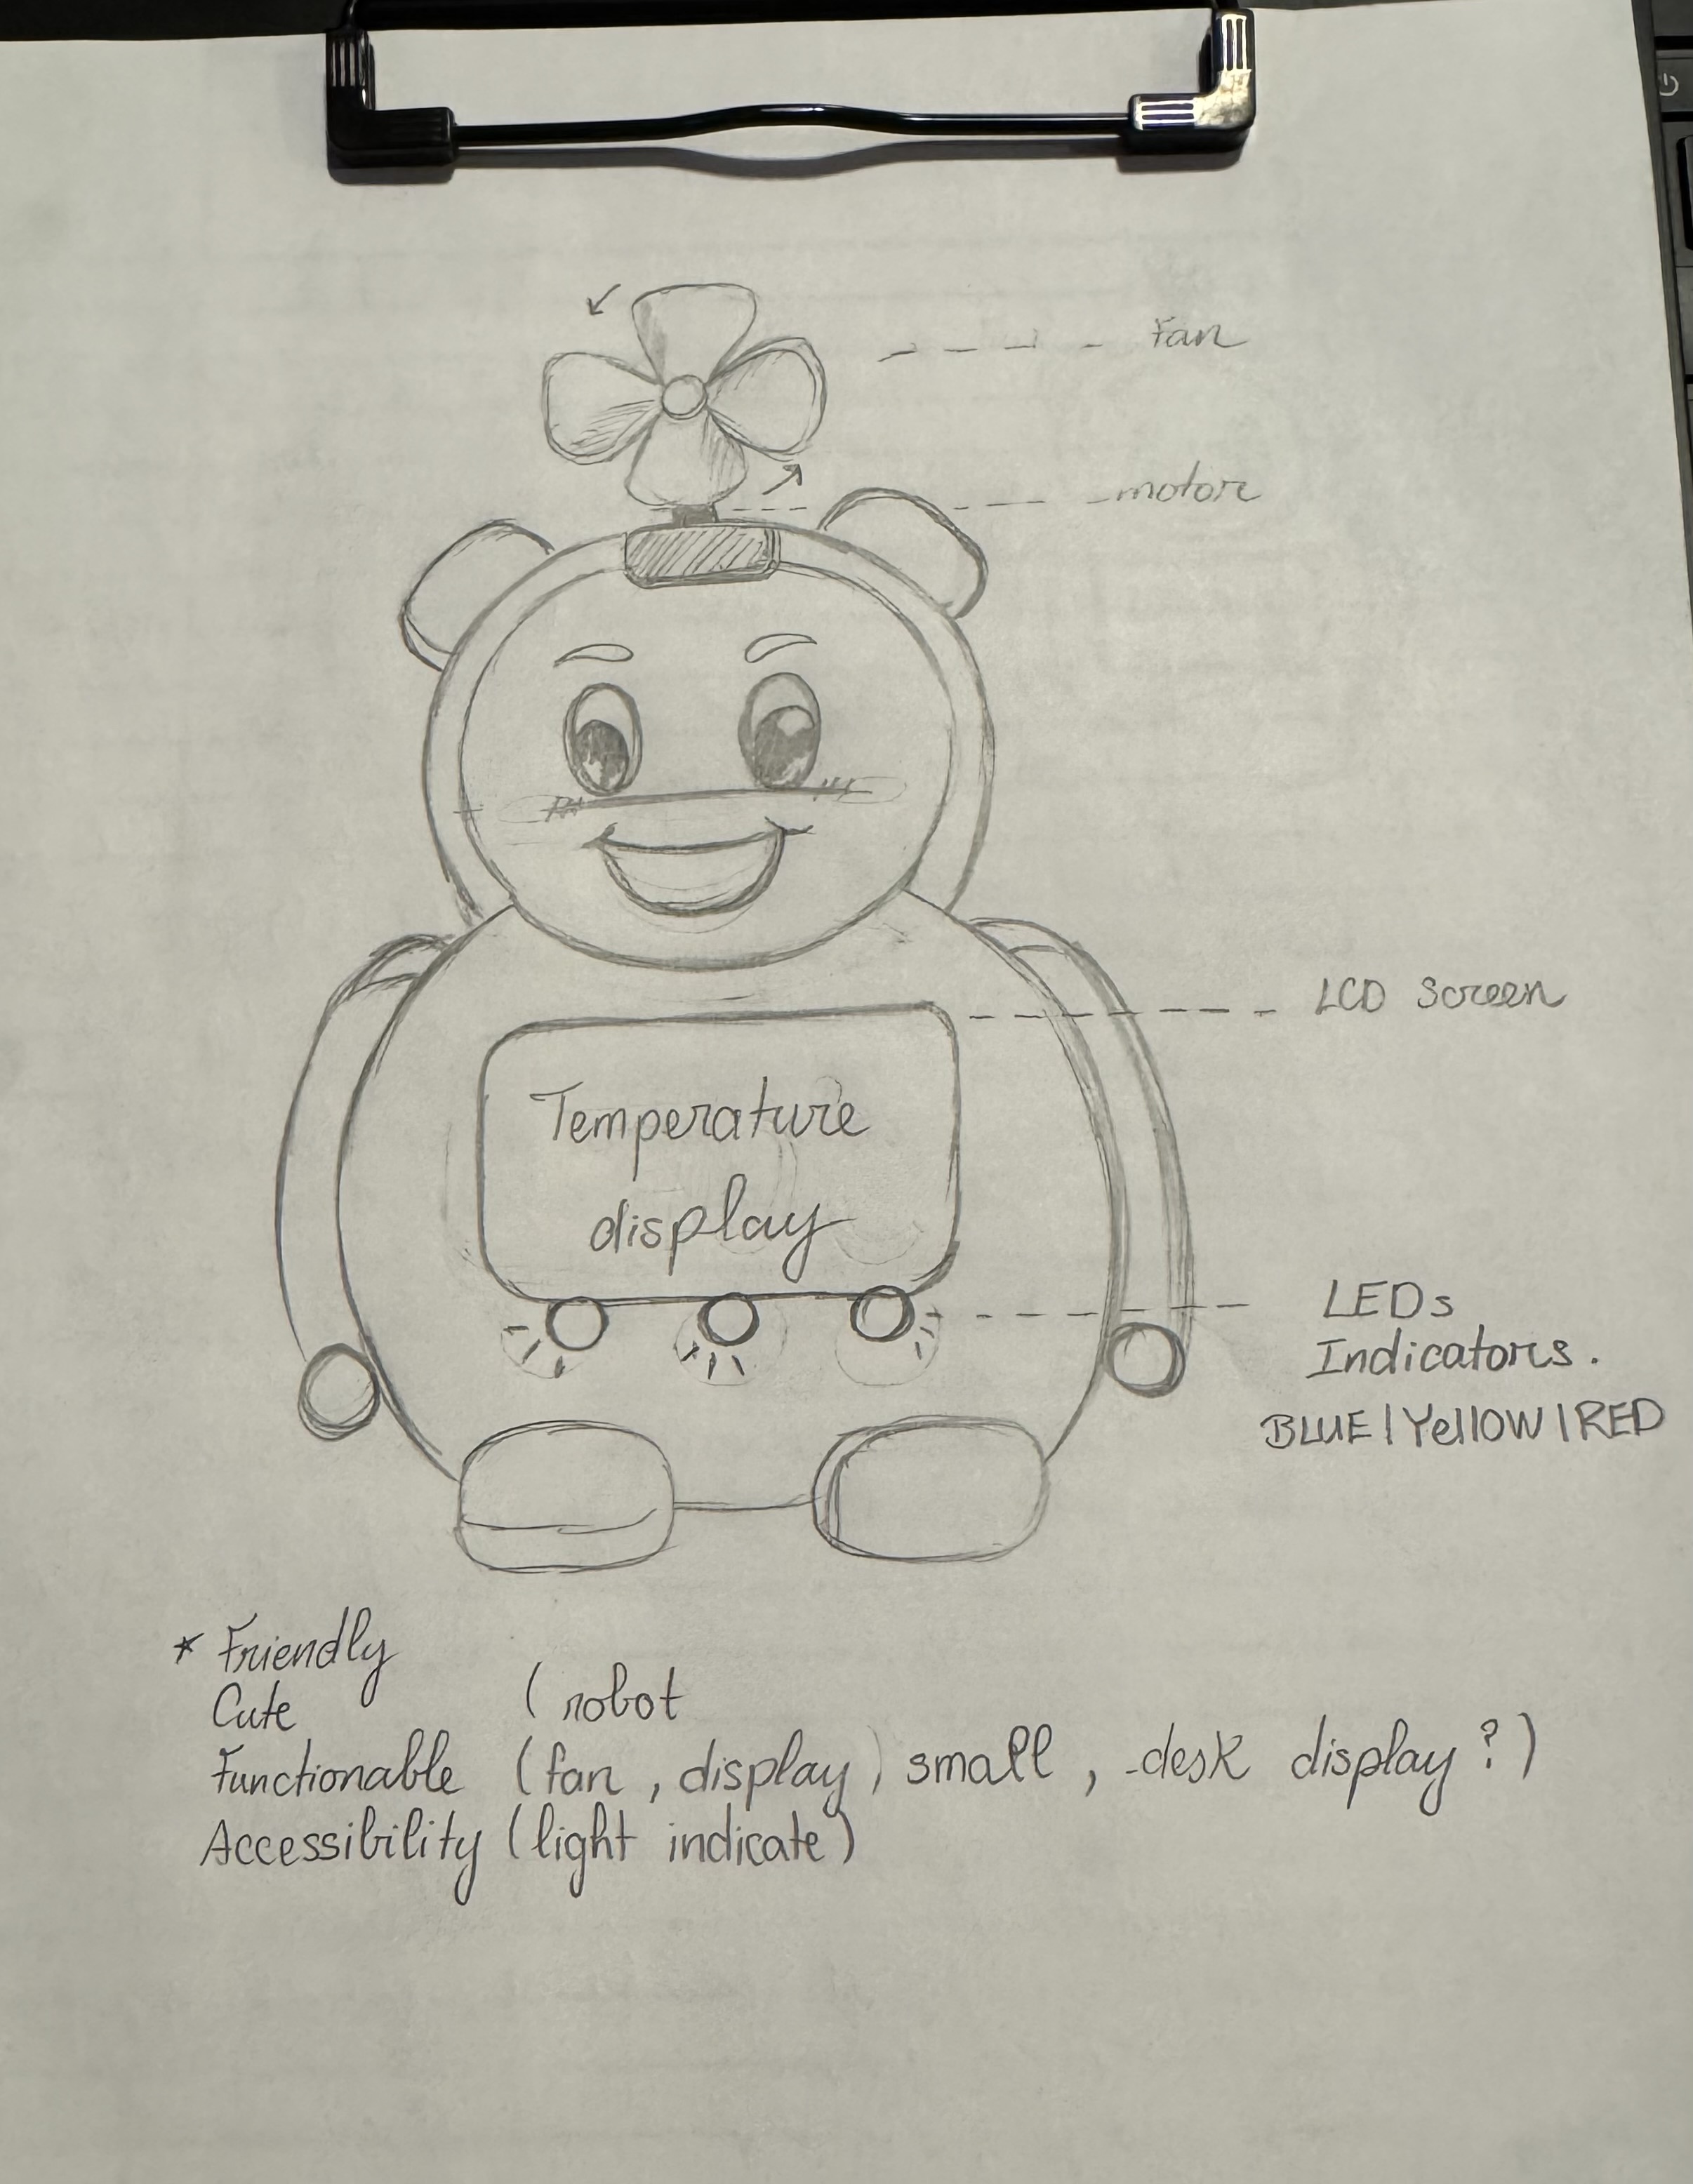 Fan
motor
LCD Screen
Temperature
display
LEDs
Indicators.
BLUE | Yellow | RED
* Friendly
Cute (robot
Functionable (fan, display) small, desk display?)
Accessibility (light indicate)